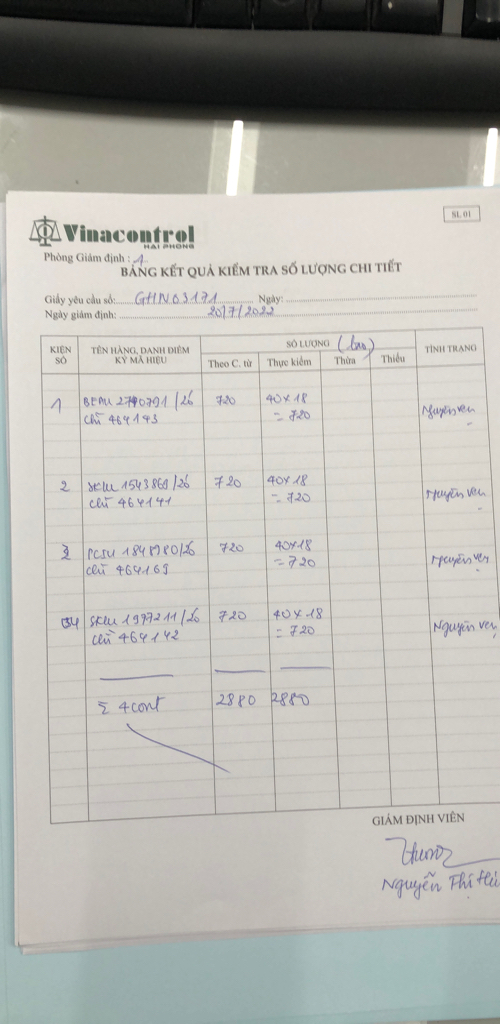 SL 01
Vinacontrol
HAI PHONG
Phòng Giám định : 1
BẢNG KẾT QUẢ KIỂM TRA SỐ LƯỢNG CHI TIẾT
Giấy yêu cầu số: GHN03171 Ngày:
Ngày giám định: 20/7/2022
KIỆN SỐ TÊN HÀNG, DANH ĐIỂM KÝ MÃ HIỆU SỐ LƯỢNG (bao) TÌNH TRẠNG
Theo C. từ Thực kiểm Thừa Thiếu
1 BEAU 2790791/20 720 40x18 Nguyên vẹn
chì 464143 = 720
2 SKLU 1543869/20 720 40x18 Nguyên vẹn
chì 464141 = 720
3 PCSU 1848980/20 720 40x18 Nguyên vẹn
chì 464169 = 720
04 SKLU 1977211/20 720 40x18 Nguyên vẹn
chì 464142 = 720
Σ 4cont 2880 2880
GIÁM ĐỊNH VIÊN
Nguyễn Thị